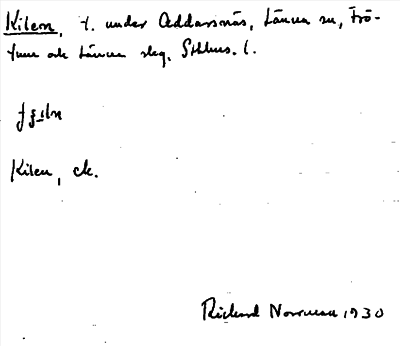 Kilen, t. under Oddarsnäs, Länna sn, Frö-
tuna och Länna skg. Sthlms. l.
Kilen, ek.
Richard Norrman 1930